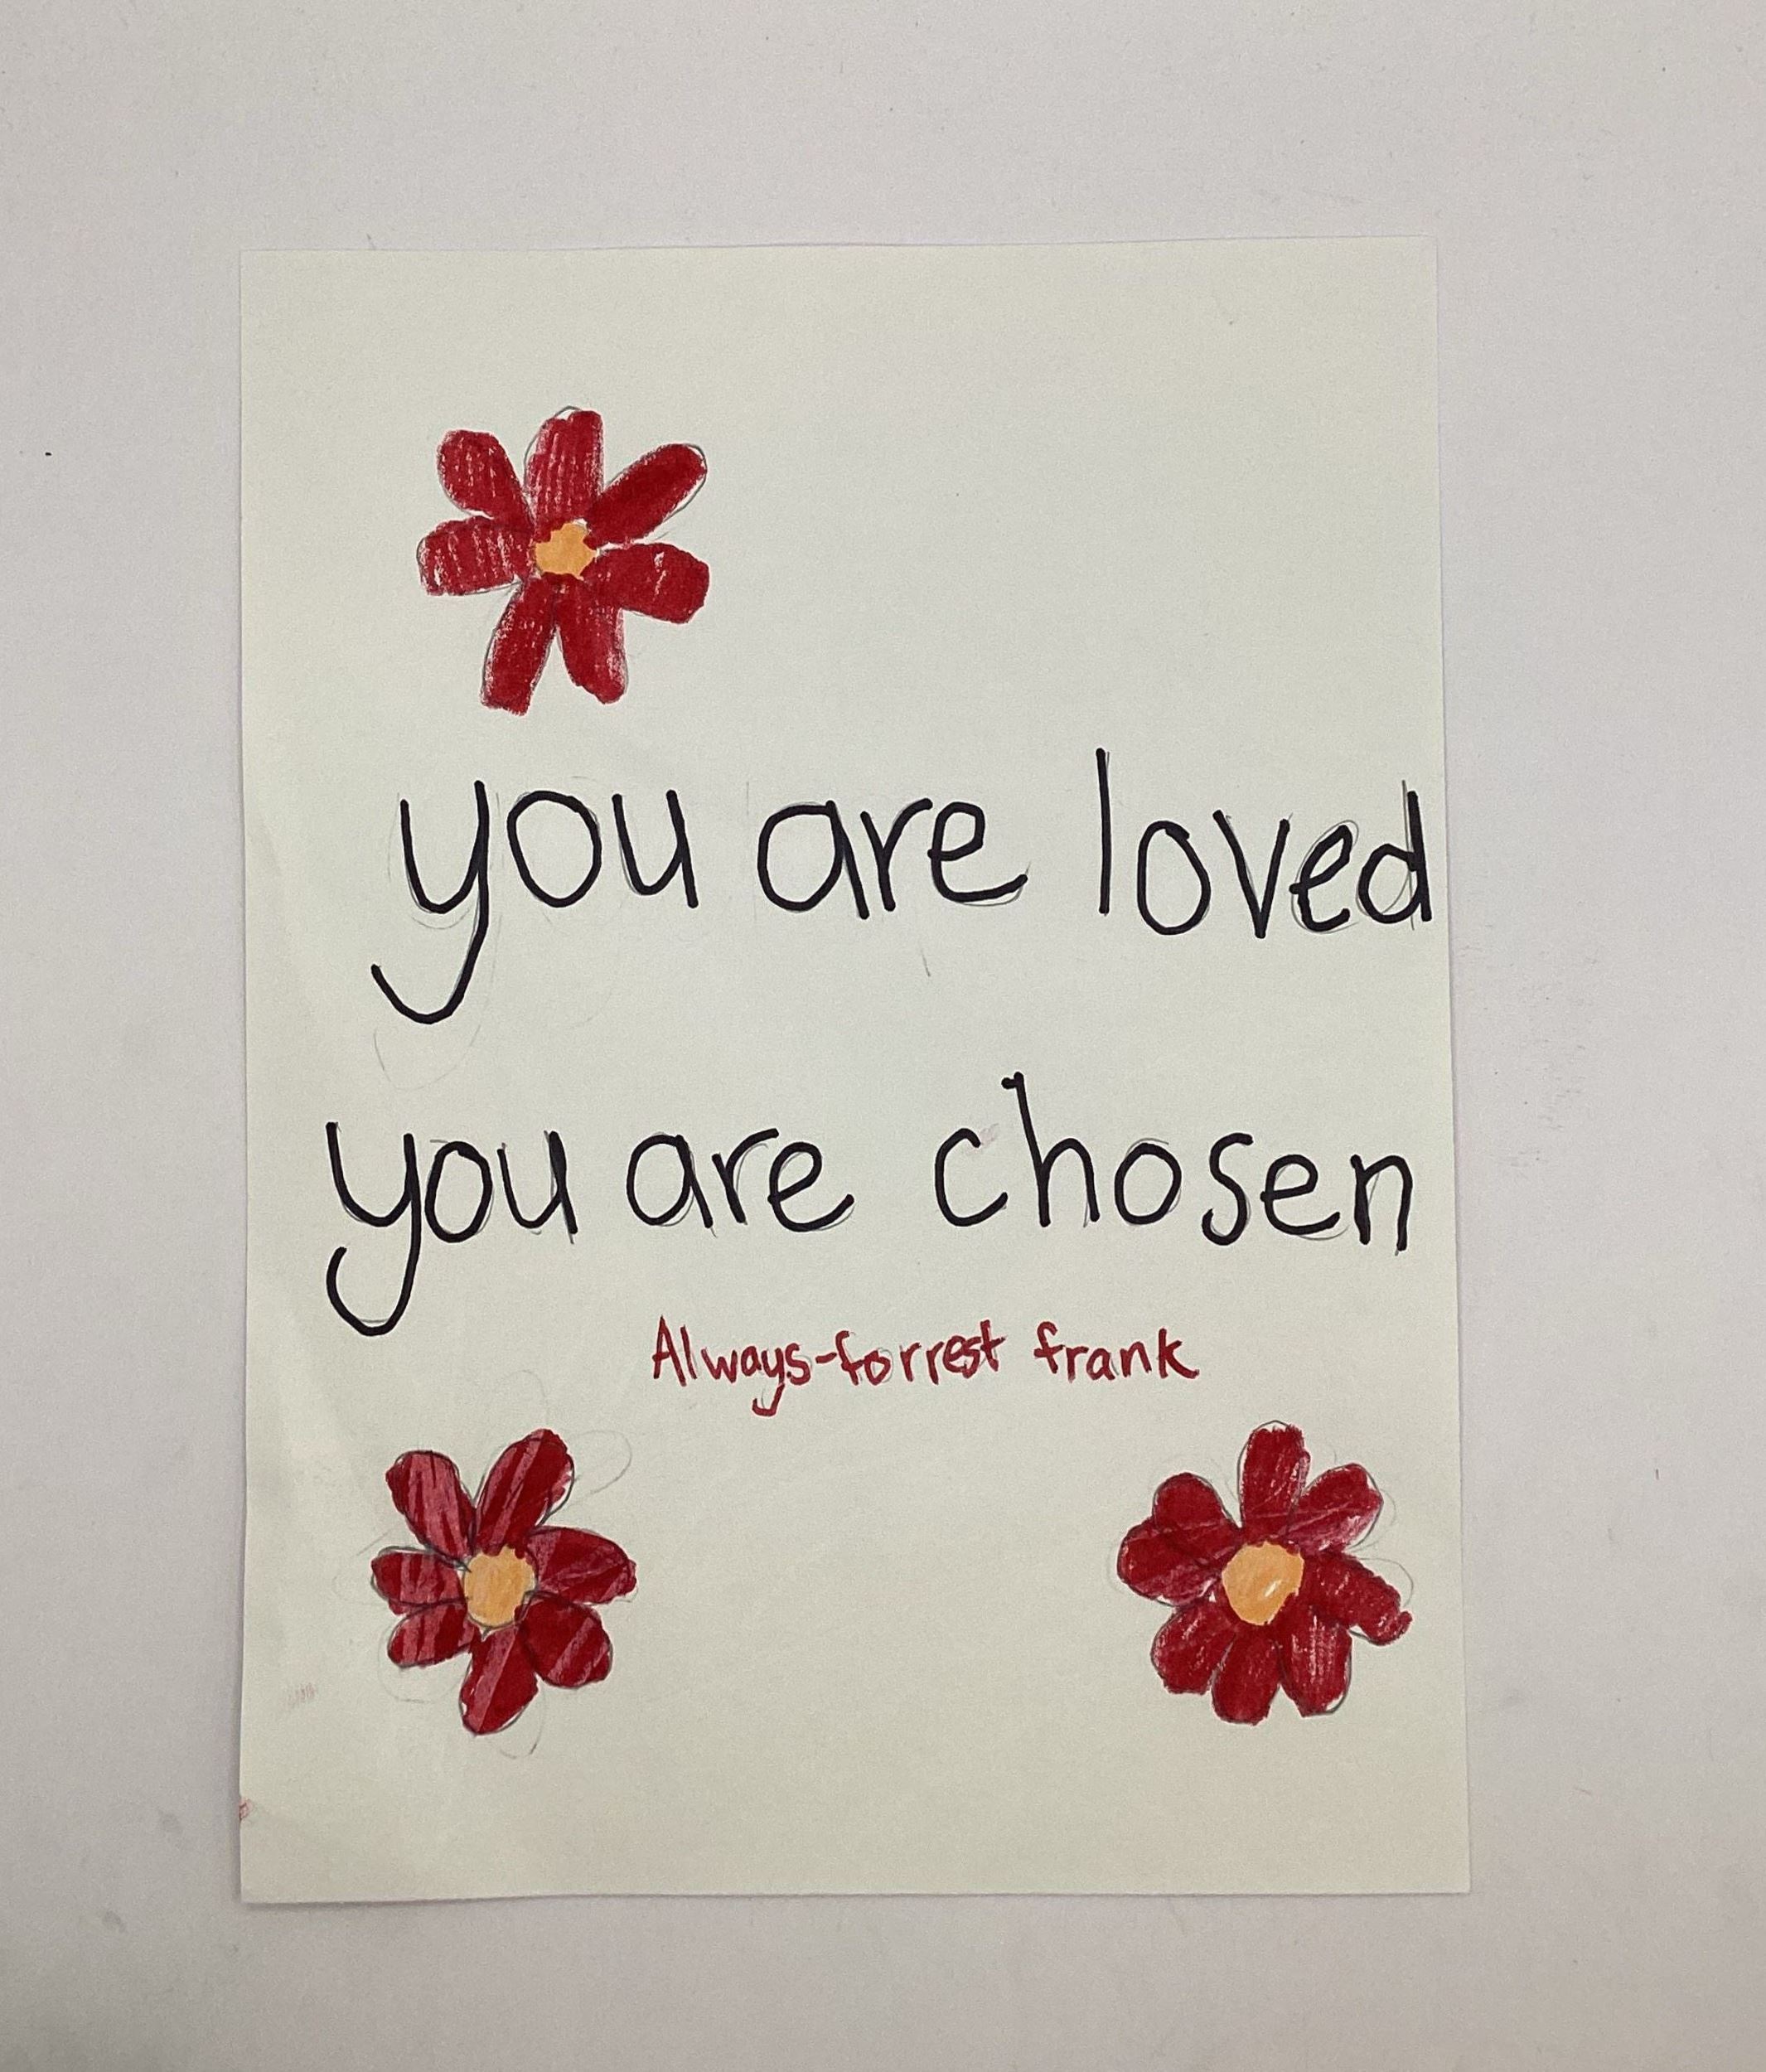 you are loved
you are chosen
Always-forrest frank